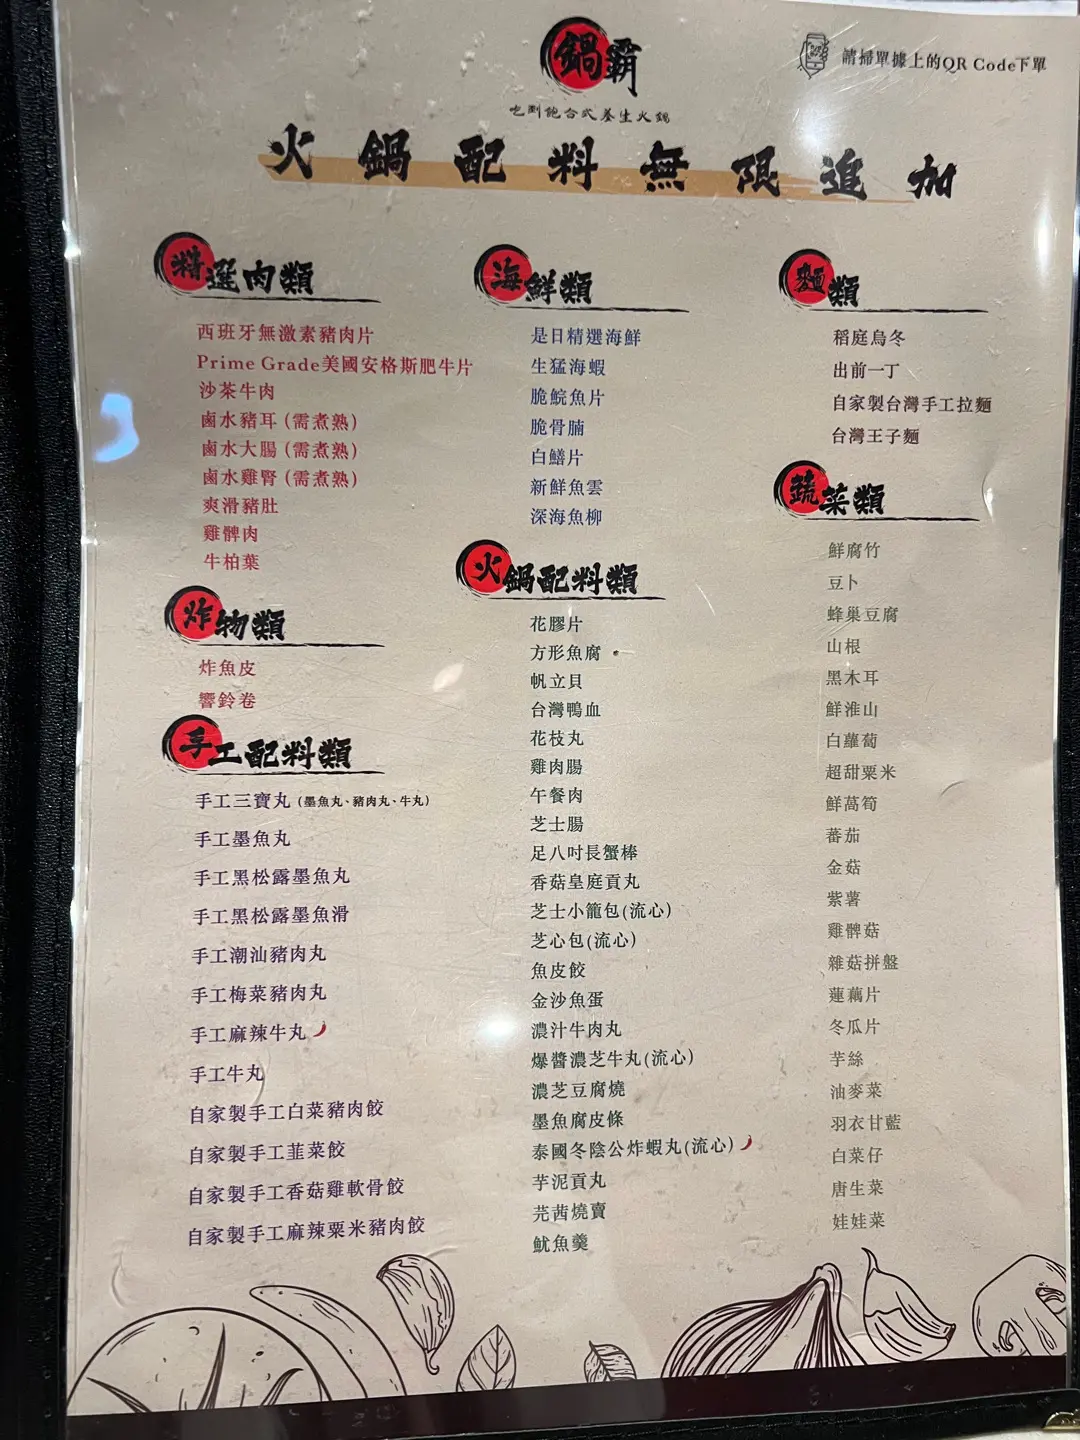 鍋霸
吃到飽台式養生火鍋
請掃單據上的QR Code下單
火鍋配料無限追加
精選肉類
西班牙無激素豬肉片
Prime Grade美國安格斯肥牛片
沙茶牛肉
鹵水豬耳 (需煮熟)
鹵水大腸 (需煮熟)
鹵水雞腎 (需煮熟)
爽滑豬肚
雞髀肉
牛柏葉
炸物類
炸魚皮
響鈴卷
手工配料類
手工三寶丸 (墨魚丸、豬肉丸、牛丸)
手工墨魚丸
手工黑松露墨魚丸
手工黑松露墨魚滑
手工潮汕豬肉丸
手工梅菜豬肉丸
手工麻辣牛丸
手工牛丸
自家製手工白菜豬肉餃
自家製手工韮菜餃
自家製手工香菇雞軟骨餃
自家製手工麻辣粟米豬肉餃
海鮮類
是日精選海鮮
生猛海蝦
脆鯇魚片
脆骨腩
白鱔片
新鮮魚雲
深海魚柳
火鍋配料類
花膠片
方形魚腐
帆立貝
台灣鴨血
花枝丸
雞肉腸
午餐肉
芝士腸
足八吋長蟹棒
香菇皇庭貢丸
芝士小籠包(流心)
芝心包(流心)
魚皮餃
金沙魚蛋
濃汁牛肉丸
爆醬濃芝牛丸(流心)
濃芝豆腐燒
墨魚腐皮條
泰國冬陰公炸蝦丸(流心)
芋泥貢丸
芫茜燒賣
魷魚羹
麵類
稻庭烏冬
出前一丁
自家製台灣手工拉麵
台灣王子麵
蔬菜類
鮮腐竹
豆卜
蜂巢豆腐
山根
黑木耳
鮮淮山
白蘿蔔
超甜粟米
鮮萵筍
蕃茄
金菇
紫薯
雞髀菇
雜菇拼盤
蓮藕片
冬瓜片
芋絲
油麥菜
羽衣甘藍
白菜仔
唐生菜
娃娃菜